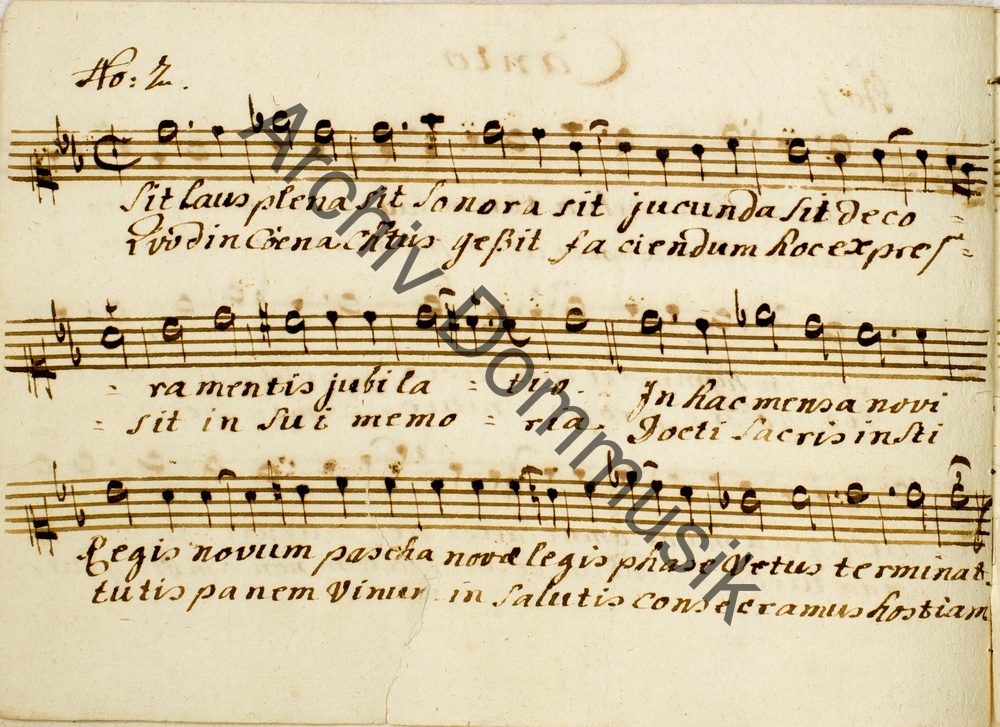 No: 2.
Sit laus plena sit sonora sit jucunda sit deco =
Quod in Coena Chtus geßit faciendum hoc expres =
= ra mentis jubila = tio. In hac mensa novi
= sit in sui memo = ria. Docti sacris insti
Regis novum pascha novæ legis phase Vetus terminat.
tutis panem Vinum in salutis consecramus hostiam
Archiv Dommusik